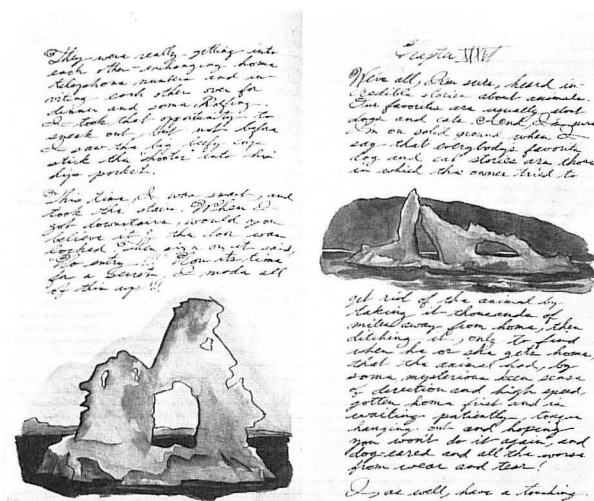 They were really getting into
each other - exchanging home
telephone numbers and in-
viting each other over for
dinner and some
I took that opportunity to
sneak out, but not before
I saw the big beefy guy
stick the shooter into his
pocket.
This time, I was smart, and
took the stairs. When I
got downstairs, would you
believe it? the door was
locked. The sign on it said,
"No entry" !!!! Now its time
for a I made all
of this up !!!
Chapter XXVI
We've all, I'm sure, heard in-
credible stories about animals.
Our favorites are usually about
dogs and cats. And, I'm sure
I'm on solid ground when I
say that everybody's favorite
dog and cat stories are those
in which the owner tried to
get rid of the animal by
taking it thousands of
miles away from home, then
ditching it, only to find
when he or she gets home,
that the animal had, by
some mysterious keen sense
of direction and high speed,
gotten home first and is
waiting patiently, tongue
hanging out and hoping
you won't do it again, and
dog-eared and all the worse
from wear and tear!
I, as well, have a touching